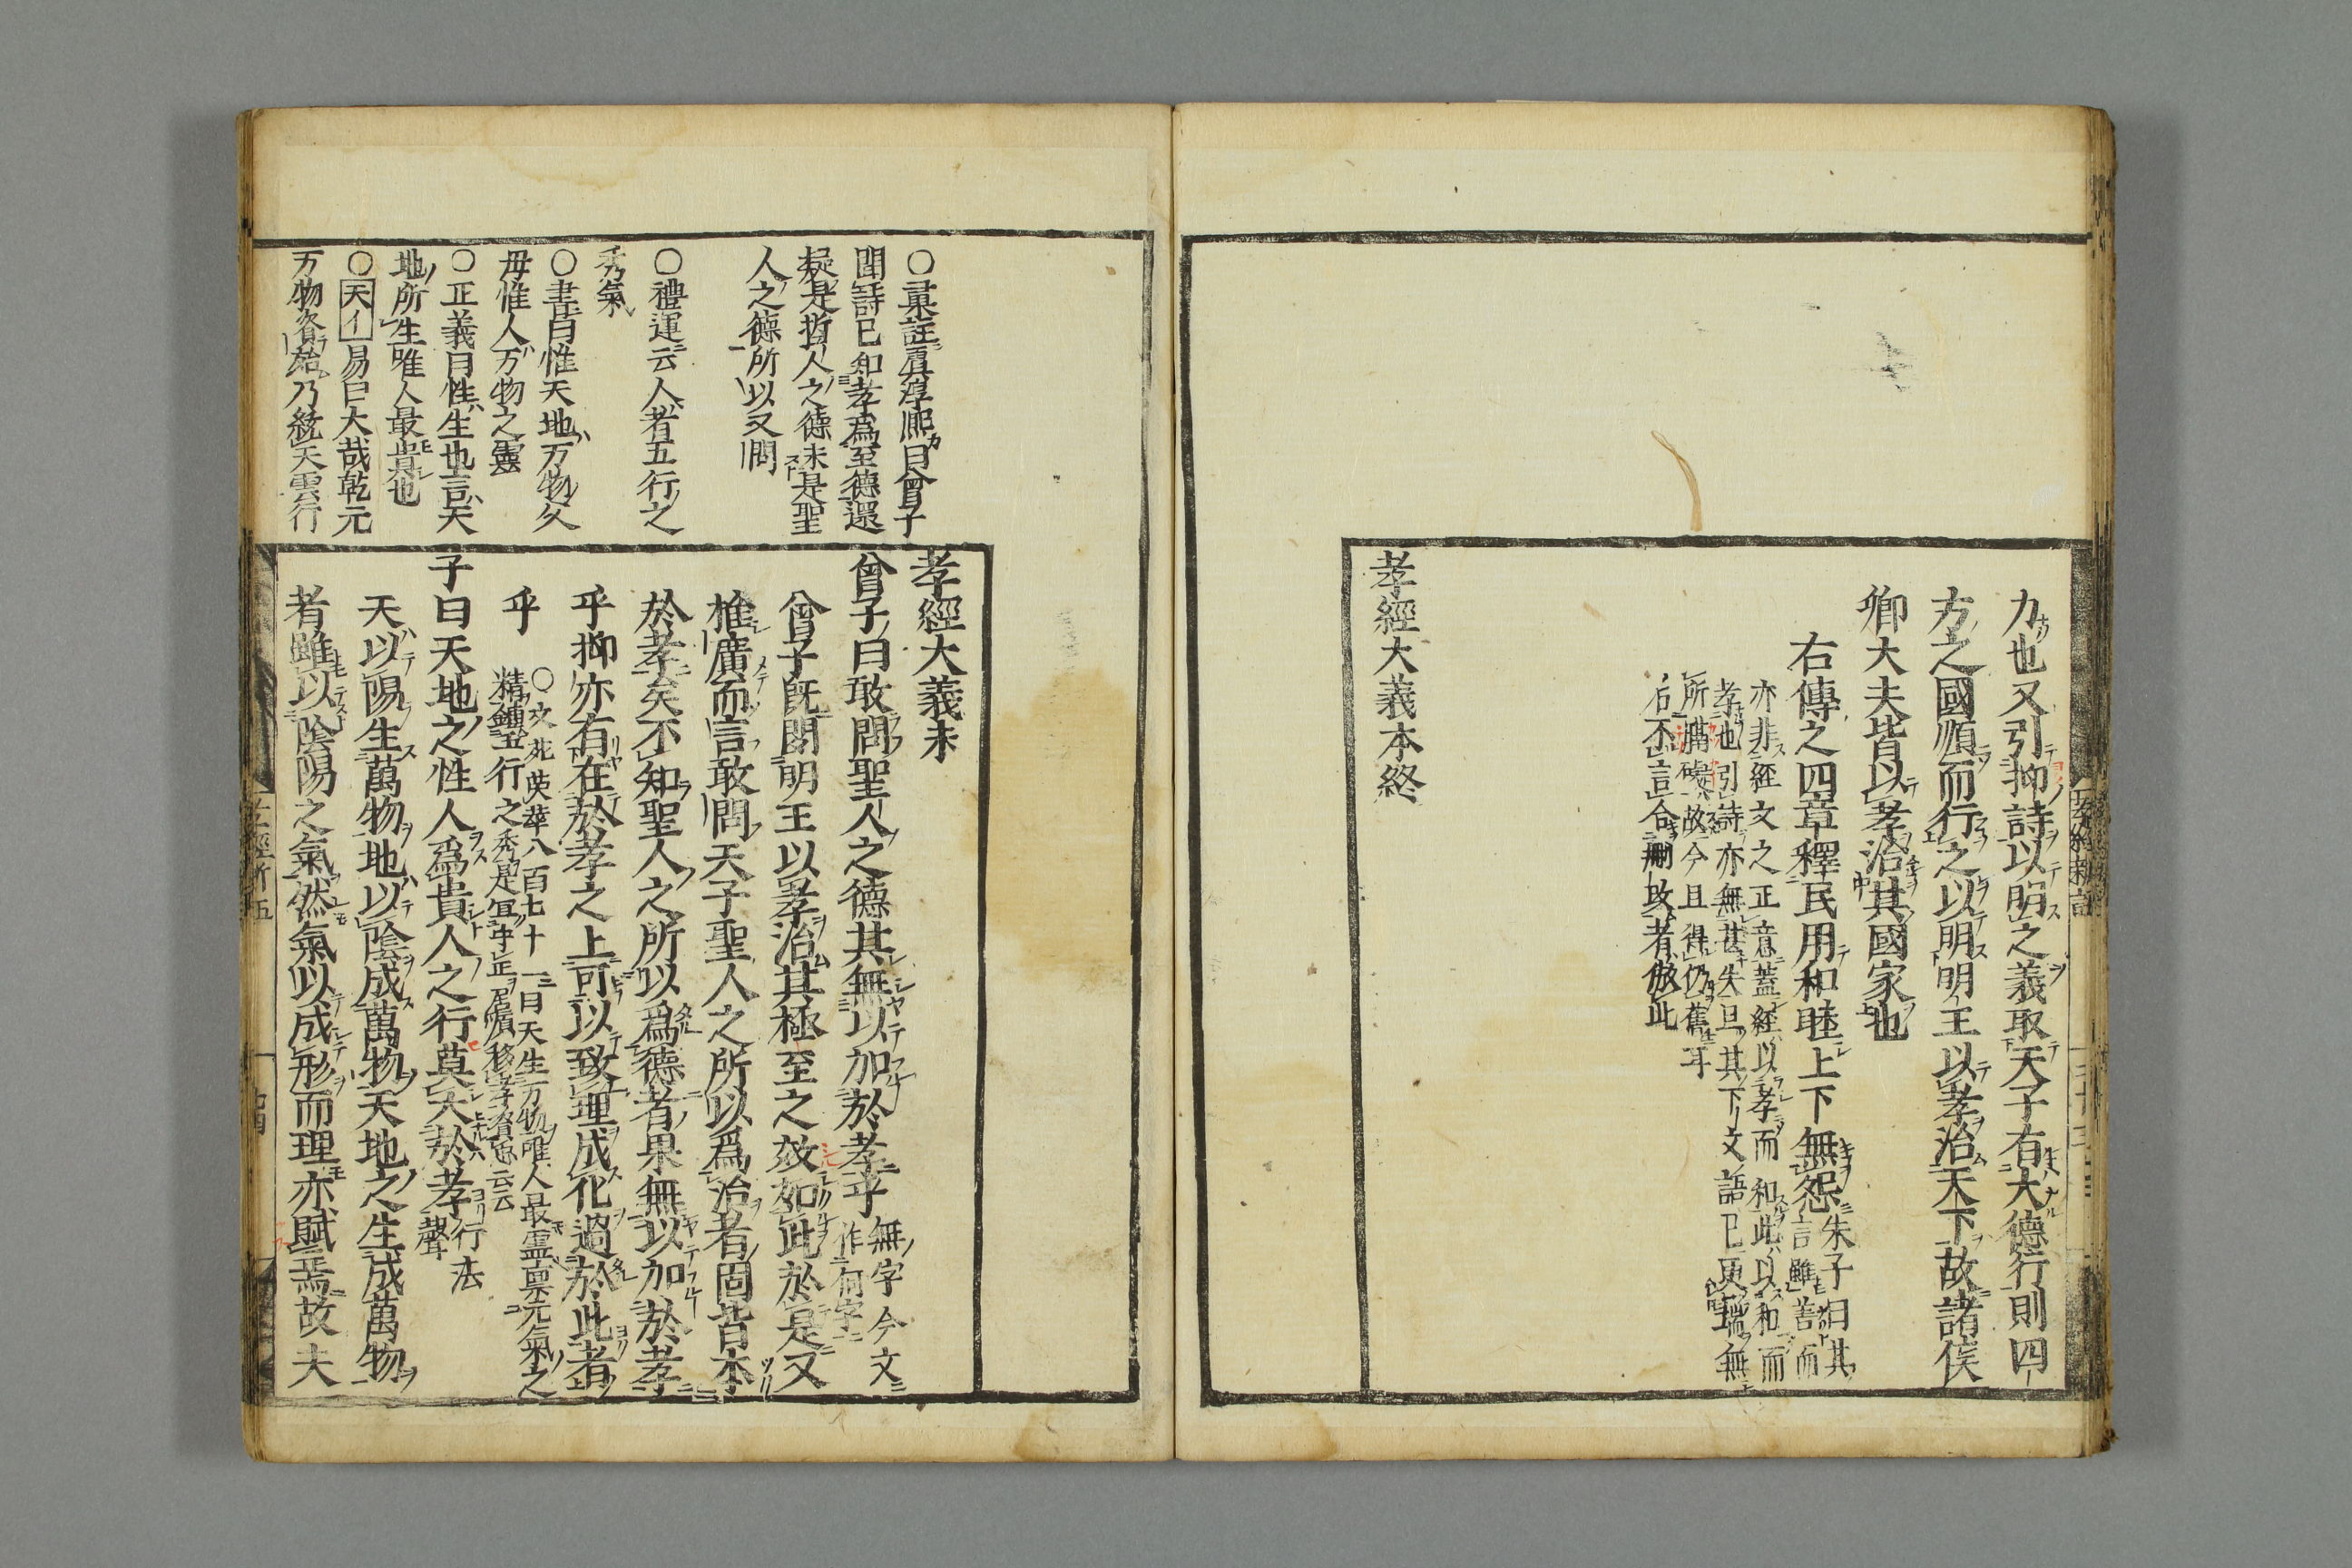 力也又引抑詩以明之義取天子有大德行則四
方之國順而行之以明明王以孝治天下故諸侯
卿大夫皆以孝治其國家也
右傳之四章釋民用和睦上下無怨
朱子曰其
言雖善而
亦非經文之正意蓋經以孝而和此以和而
孝也引詩亦無甚失且其下文語已更端無
所隔礙故今且得仍舊耳
後不言合刪改者倣此
孝經大義本終
○彙註虞淳熙曰曾子
聞詩已知孝為至德還
疑是哲人之德未是聖
人之德所以又問
○禮運云人者五行之
秀氣
○書曰惟天地万物父
母惟人万物之靈
○正義曰性生也言天
地所生唯人最貴也
○天イ易曰大哉乾元
万物資始乃統天雲行
孝經大義末
曾子曰敢問聖人之德其無以加於孝乎
無字今文
作何字
曾子既聞明王以孝治其極至之效如此於是又
推廣而言敢問天子聖人之所以爲治者固皆本
於孝矣不知聖人之所以爲德者果無以加於孝
乎抑亦有在於孝之上可以致理成化過於此者
乎
○文苑英華八百七十一曰天生万物唯人最靈稟元氣之
精鍾五行之秀
子曰天地之性人爲貴人之行莫大於孝
行去
聲
天以陽生萬物地以陰成萬物天地之生成萬物
者雖以陰陽之氣然氣以成形而理亦賦焉故夫